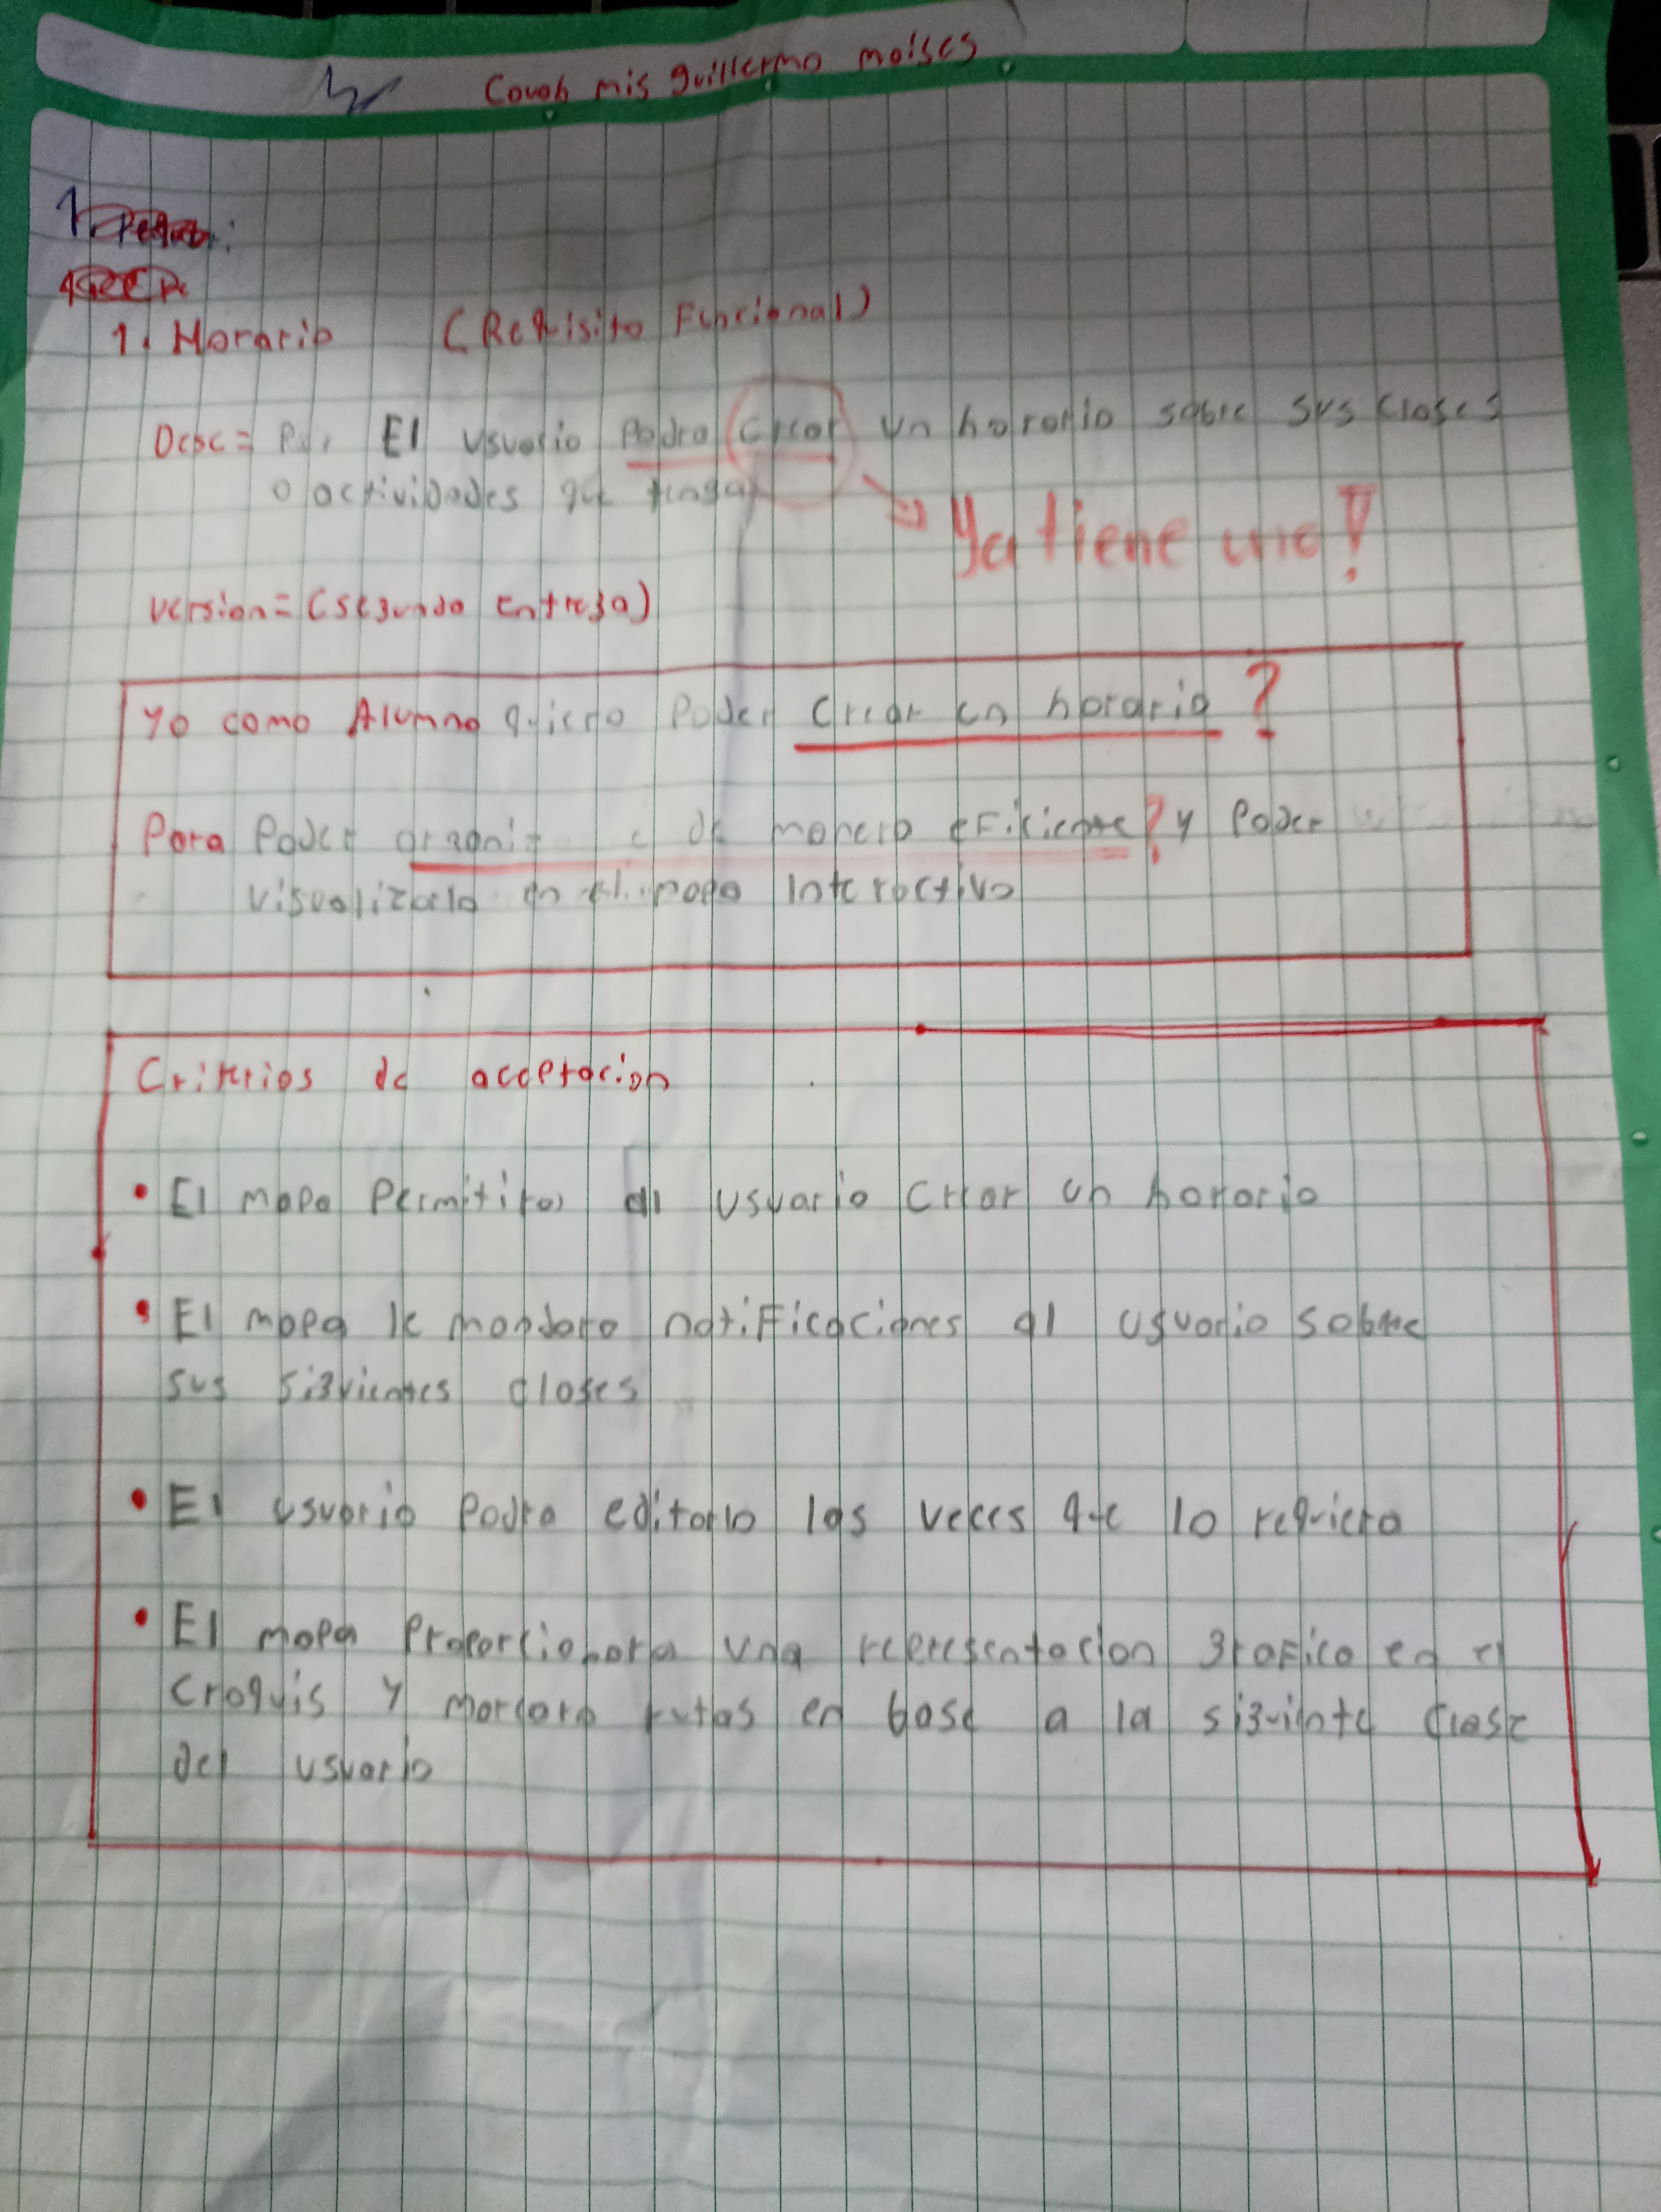 Couoh mis guillermo moises
1.
1. Horario (Requisito Funcional)
Desc = El usuario podra crear un horario sobre sus clases
o actividades que tenga
Ya tiene uno!
version = (segundo entrega)
Yo como Alumno quiero poder crear un horario ?
Para poder de manera eficiente ? y poder
visualizarlo en el mapa interactivo
Criterios de aceptacion
• El mapa permitira al usuario crear un horario
• El mapa le mandara notificaciones al usuario sobre
sus siguientes clases
• El usuario podra editarlo las veces que lo requiera
• El mapa proporcionara una representacion grafica en el
croquis y marcara rutas en base a la siguinte clase
del usuario